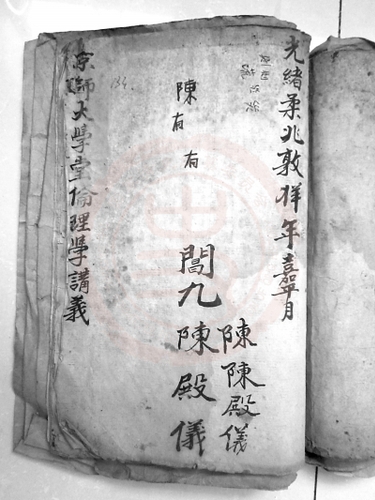 光緒柔兆敦牂年嘉平月
陳陳殿儀
陳有有
閭九陳殿儀
京師大學堂倫理學講義